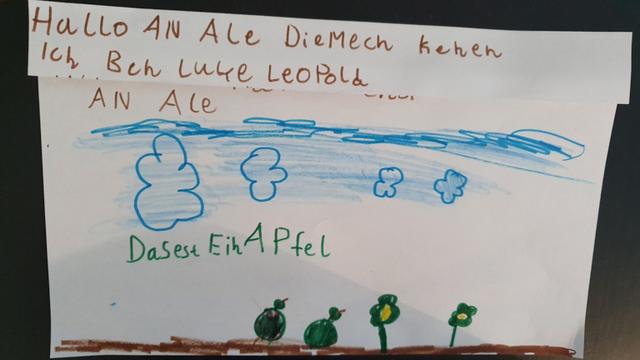 HaLLo AN ALe DieMech kehen
Ich Beh LUKE LEOPOLD
AN ALe
Dasest Eih APfel